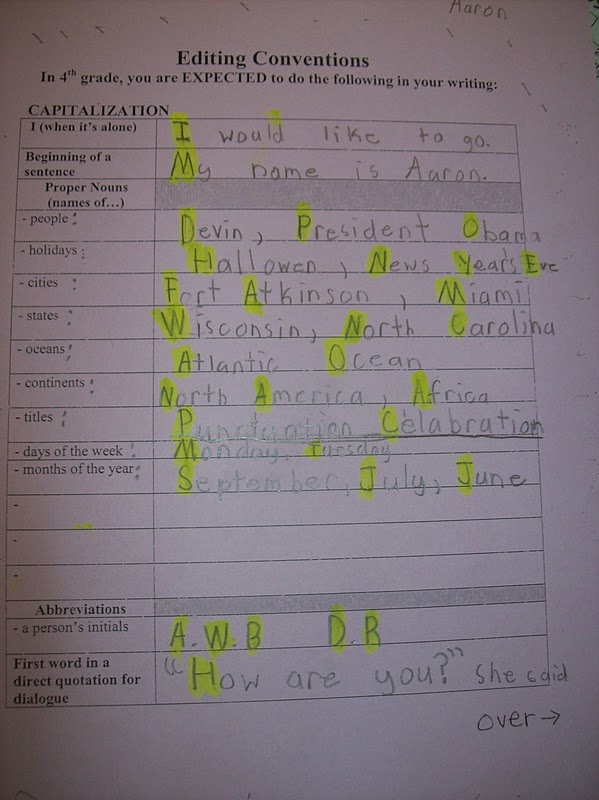 Aaron
Editing Conventions
In 4th grade, you are EXPECTED to do the following in your writing:
CAPITALIZATION
I (when it's alone) I would like to go.
Beginning of a sentence My name is Aaron.
Proper Nouns (names of…)
- people : Devin, President Obama
- holidays : Hallowen, News Years Eve
- cities : Fort Atkinson, Miami
- states : Wisconsin, North Carolina
- oceans : Atlantic Ocean
- continents : North America, Africa
- titles : Punctuation Celabration
- days of the week : Monday, Tuesday
- months of the year : September, July, June
-
-
-
Abbreviations
- a person's initials A.W.B D.R
First word in a direct quotation for dialogue "How are you?" she said
over →